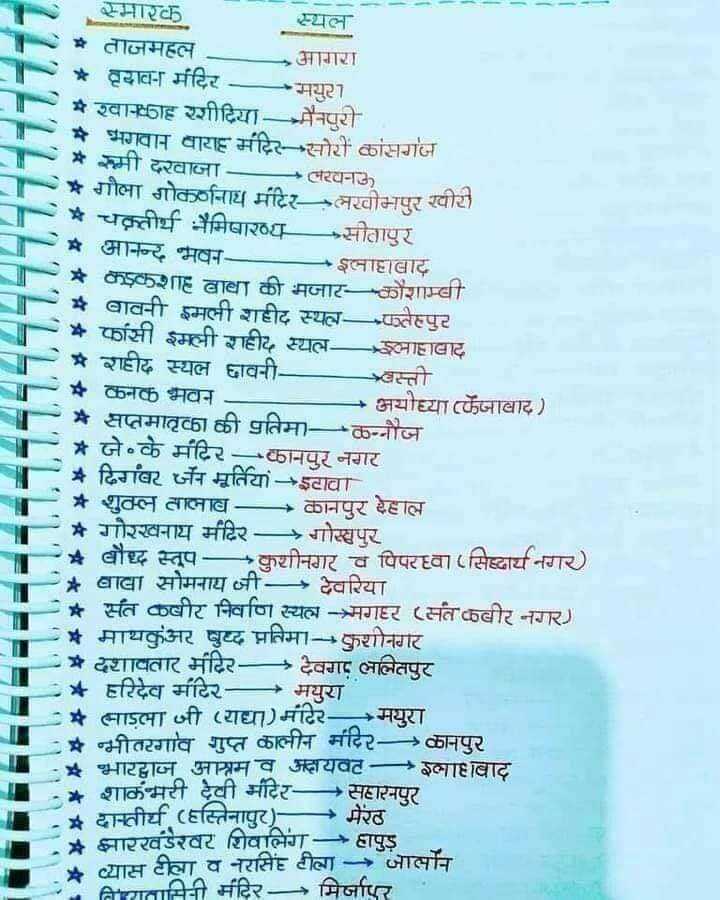 स्मारक स्थल
★ ताजमहल → आगरा
★ वृदावन मंदिर → मथुरा
★ खानकाह रशीदिया → मैनपुरी
★ भगवान वाराह मंदिर → सोरों कांसगंज
★ रूमी दरवाजा → लखनऊ
★ गोला गोकर्णनाथ मंदिर → लखीमपुर खीरी
★ चक्रतीर्थ नैमिषारण्य → सीतापुर
★ आनन्द भवन → इलाहाबाद
★ कड़कशाह बाबा की मजार → कौशाम्बी
★ बावनी इमली शहीद स्थल → फतेहपुर
★ फांसी इमली शहीद स्थल → इलाहाबाद
★ शहीद स्थल छावनी → बस्ती
★ कनक भवन → अयोध्या (फैजाबाद)
★ सप्तमातृका की प्रतिमा → कन्नौज
★ जे॰ के मंदिर → कानपुर नगर
★ दिगांबर जैन मूर्तियां → इटावा
★ शुक्ल तालाब → कानपुर देहात
★ गोरखनाथ मंदिर → गोरखपुर
★ बौध्द स्तूप → कुशीनगर व पिपरहवा (सिद्धार्थ नगर)
★ बाबा सोमनाथ जी → देवरिया
★ संत कबीर निर्वाण स्थल → मगहर (संत कबीर नगर)
★ माथकुंअर बुध्द प्रतिमा → कुशीनगर
★ दशावतार मंदिर → देवगढ़ ललितपुर
★ हरिदेव मंदिर → मथुरा
★ लाड़ला जी (राधा) मंदिर → मथुरा
★ भीतरगांव गुप्त कालीन मंदिर → कानपुर
★ भारद्वाज आश्रम व अक्षयवट → इलाहाबाद
★ शाकंभरी देवी मंदिर → सहारनपुर
★ दानतीर्थ (हस्तिनापुर) → मेरठ
★ झारखंडेश्वर शिवलिंग → हापुड़
★ व्यास टीला व नरसिंह टीला → जालौन
★ विंध्यवासिनी मंदिर → मिर्जापुर